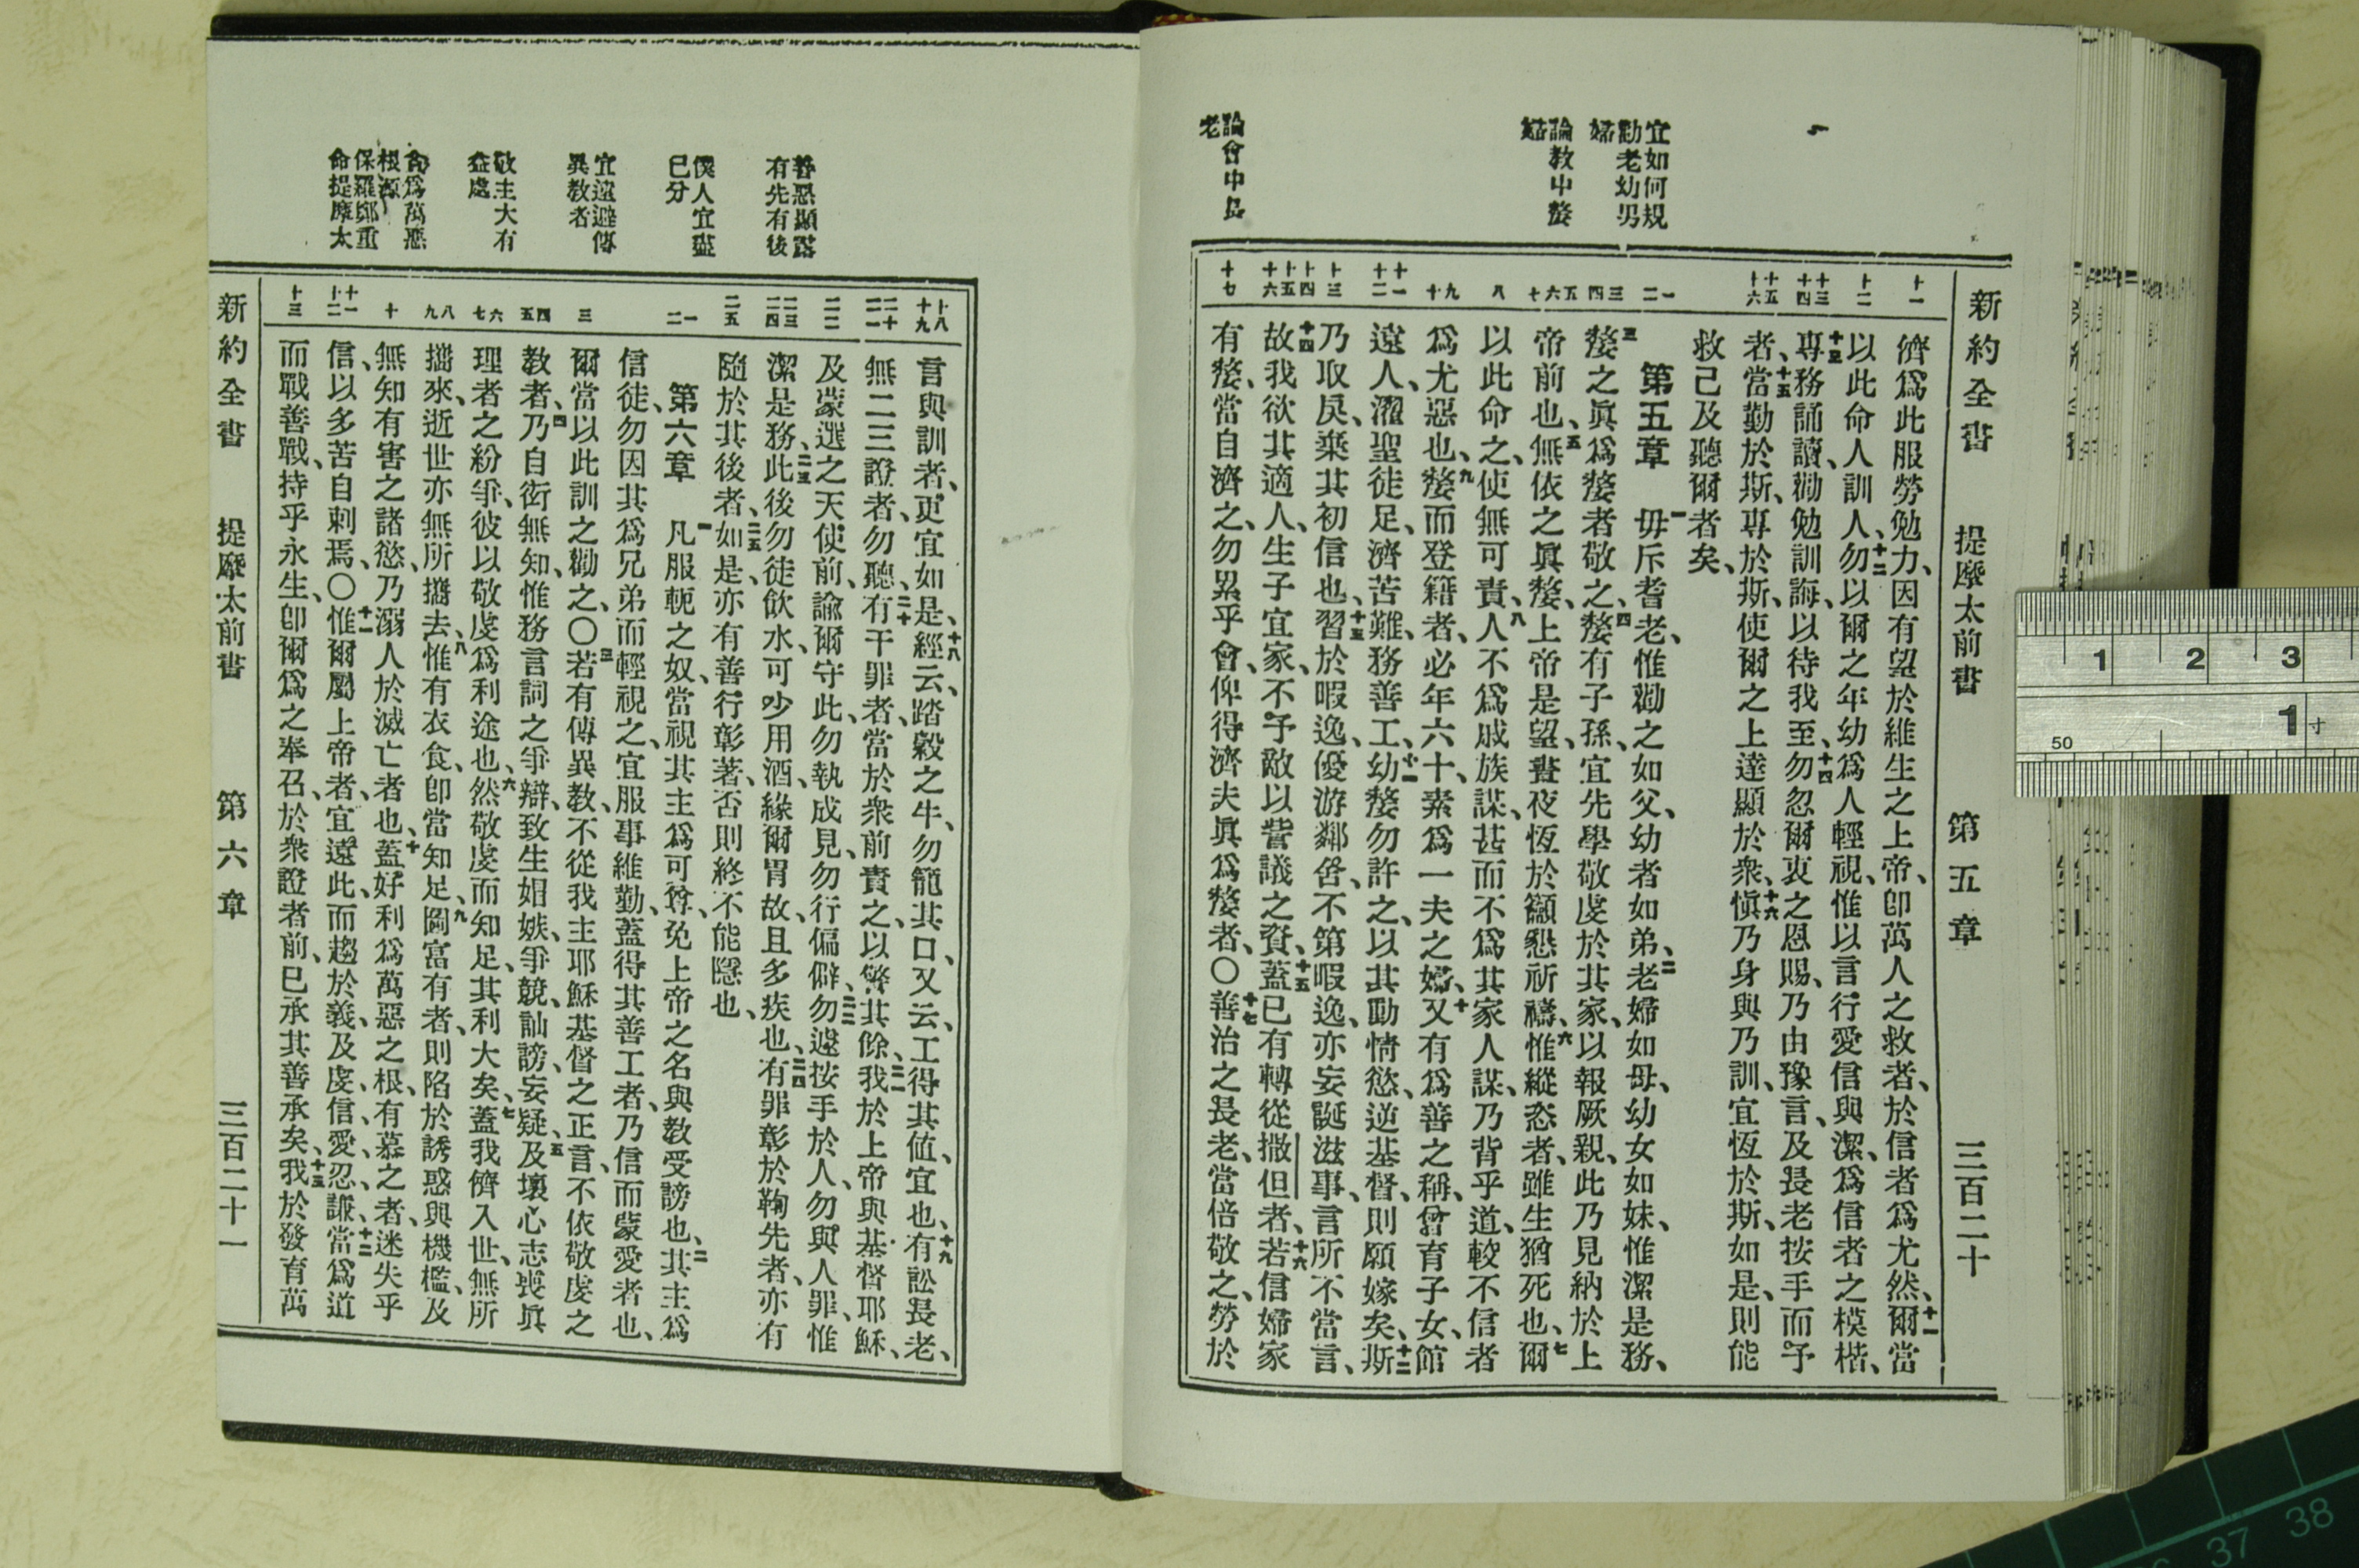 新約全書 提摩太前書 第五章 三百二十
宜如何規
勸老幼男
婦
論教中嫠
婦
論會中長
老
十一
十二
十三
十四
十五
十六
一
二
三
四
五
六
七
八
九
十
十一
十二
十三
十四
十五
十六
十七
濟爲此服勞勉力、因有望於維生之上帝、卽萬人之救者、於信者爲尤然、十一爾當
以此命人訓人、十二勿以爾之年幼爲人輕視、惟以言行愛信與潔、爲信者之模楷、
十三專務誦讀、勸勉訓誨、以待我至、十四勿忽爾衷之恩賜、乃由豫言、及長老按手而予
者、十五當勤於斯、專於斯、使爾之上達顯於衆、十六愼乃身與乃訓、宜恆於斯、如是、則能
救己及聽爾者矣、
第五章 一毋斥耆老、惟勸之如父、幼者如弟、二老婦如母、幼女如妹、惟潔是務、
三嫠之眞爲嫠者敬之、四嫠有子孫、宜先學敬虔於其家、以報厥親、此乃見納於上
帝前也、五無依之眞嫠、上帝是望、晝夜恆於籲懇祈禱、六惟縱恣者、雖生猶死也、七爾
以此命之、使無可責、八人不爲戚族謀、甚而不爲其家人謀、乃背乎道、較不信者
爲尤惡也、九嫠而登籍者、必年六十、素爲一夫之婦、十又有爲善之稱、曾育子女、館
遠人、濯聖徒足、濟苦難、務善工、十一幼嫠勿許之、以其動情慾、逆基督、則願嫁矣、十二斯
乃取戾、棄其初信也、十三習於暇逸、優游鄰舍、不第暇逸、亦妄誕滋事、言所不當言、
十四故我欲其適人、生子宜家、不予敵以訾議之資、十五蓋已有轉從撒但者、十六若信婦家
有嫠、當自濟之、勿累乎會、俾得濟夫眞爲嫠者、〇十七善治之長老、當倍敬之、勞於
善惡顯露
有先有後
僕人宜盡
己分
宜遠避傳
異教者
敬主大有
益處
貪爲萬惡
根源
保羅鄭重
命提摩太
十八
十九
二十
二一
二二
二三
二四
二五
一
二
三
四
五
六
七
八
九
十
十一
十二
十三
言與訓者、更宜如是、十八經云、踏穀之牛、勿籠其口、又云、工得其値、宜也、十九有訟長老、
無二三證者、勿聽、二十有干罪者、當於衆前責之、以警其餘、二一我於上帝與基督耶穌、
及蒙選之天使前、諭爾守此、勿執成見、勿行偏僻、二二勿遽按手於人、勿與人罪、惟
潔是務、二三此後勿徒飮水、可少用酒、緣爾胃故、且多疾也、二四有罪彰於鞫先者、亦有
隨於其後者、二五如是、亦有善行彰著、否則終不能隱也、
第六章 一凡服軛之奴、當視其主爲可尊、免上帝之名與教受謗也、二其主爲
信徒、勿因其爲兄弟而輕視之、宜服事維勤、蓋得其善工者、乃信而蒙愛者也、
爾當以此訓之勸之、〇三若有傳異教、不從我主耶穌基督之正言、不依敬虔之
教者、四乃自衒無知、惟務言詞之爭辯、致生媢嫉、爭競、訕謗、妄疑、五及壞心志喪眞
理者之紛爭、彼以敬虔爲利途也、六然敬虔而知足、其利大矣、七蓋我儕入世、無所
攜來、逝世亦無所攜去、八惟有衣食、卽當知足、九圖富有者、則陷於誘惑與機檻、及
無知有害之諸慾、乃溺人於滅亡者也、十蓋好利爲萬惡之根、有慕之者、迷失乎
信、以多苦自刺焉、〇十一惟爾屬上帝者、宜遠此、而趨於義、及虔、信、愛、忍、謙、十二當爲道
而戰善戰、持乎永生、卽爾爲之奉召、於衆證者前、已承其善承矣、十三我於發育萬
新約全書 提摩太前書 第六章 三百二十一
1 2 3
50 1寸
37 38